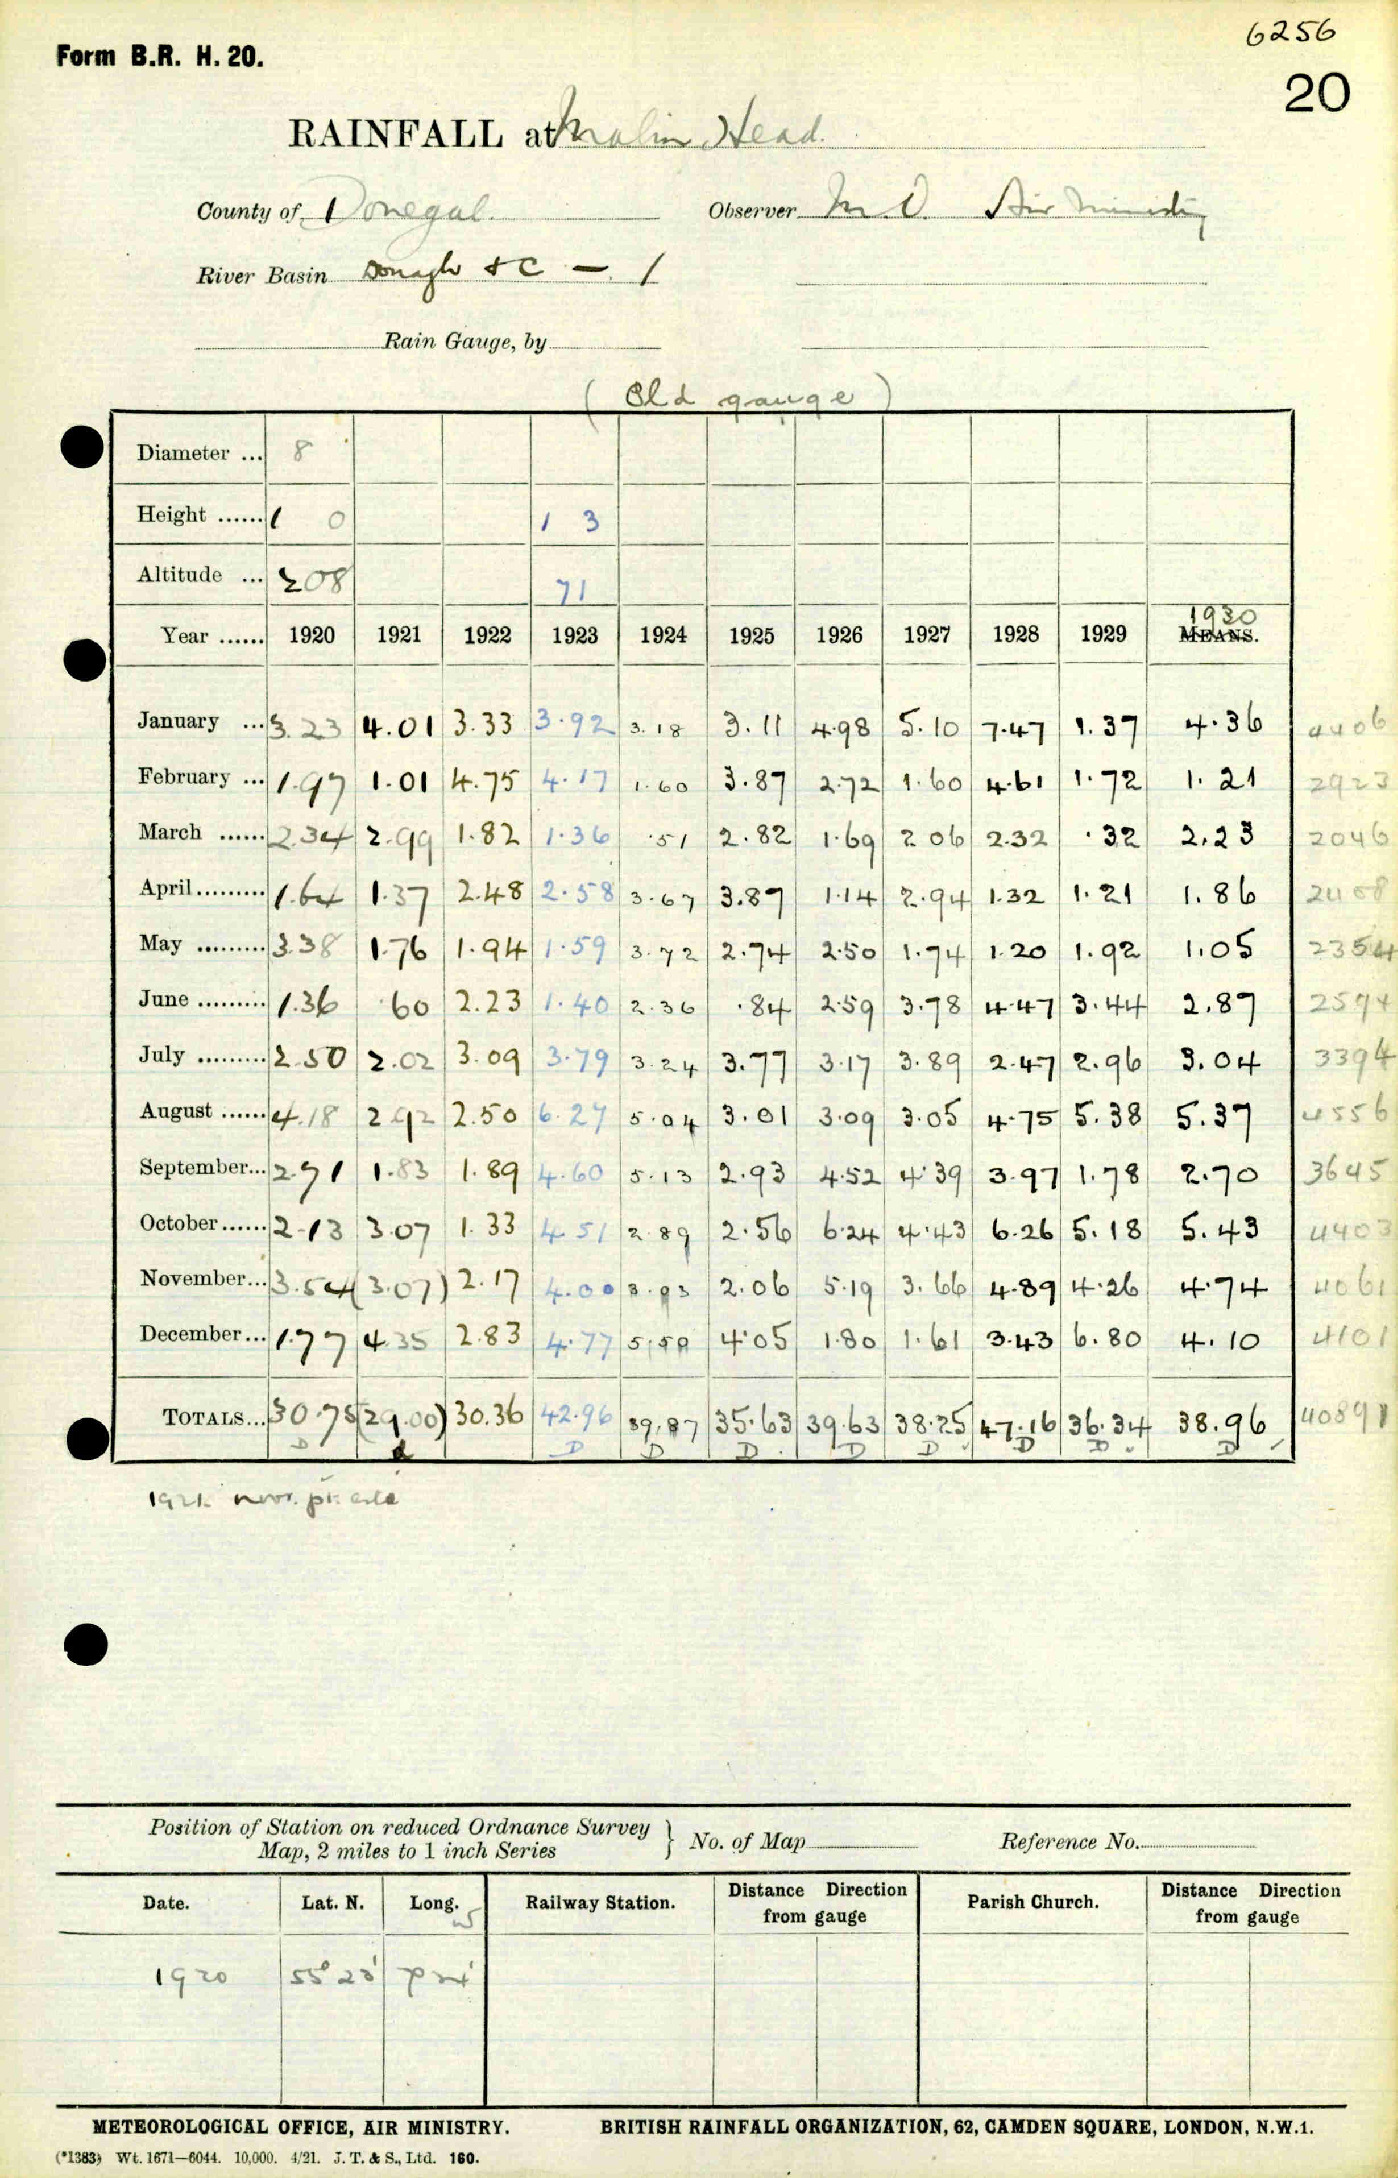 6256
Form B.R. H. 20.
20
RAINFALL at Malin Head.
County of Donegal. Observer M.O. Air Ministry
River Basin Donagh & C — 1
Rain Gauge, by
(Old gauge)
Diameter ... 8
Height ...... 1 0 1 3
Altitude ... 208 71
1930
Year ...... 1920 1921 1922 1923 1924 1925 1926 1927 1928 1929 MEANS.
January ... 3.23 4.01 3.33 3.92 3.18 3.11 4.98 5.10 7.47 1.37 4.36 4406
February ... 1.97 1.01 4.75 4.17 1.60 3.87 2.72 1.60 4.61 1.72 1.21 2923
March ...... 2.34 2.99 1.82 1.36 .51 2.82 1.69 2 06 2.32 .32 2.23 2046
April......... 1.64 1.37 2.48 2.58 3.67 3.87 1.14 2.94 1.32 1.21 1.86 2408
May ......... 3.38 1.76 1.94 1.59 3.72 2.74 2.50 1.74 1.20 1.92 1.05 2354
June ......... 1.36 .60 2.23 1.40 2.36 .84 2.59 3.78 4.47 3.44 2.87 2594
July ......... 2.50 2.02 3.09 3.79 3.24 3.77 3.17 3.89 2.47 2.96 3.04 3394
August ...... 4.18 2.92 2.50 6.27 5.04 3.01 3.09 3.05 4.75 5.38 5.37 4556
September... 2.71 1.83 1.89 4.60 5.13 2.93 4.52 4.39 3.97 1.78 2.70 3645
October...... 2.13 3.07 1.33 4.51 2.89 2.56 6.24 4.43 6.26 5.18 5.43 4403
November... 3.54 (3.07) 2.17 4.00 2.06 5.19 3.66 4.89 4.26 4.74 4061
December... 1.77 4.35 2.83 4.77 4.05 1.80 1.61 3.43 6.80 4.10 4101
TOTALS... 30.75 (29.00) 30.36 42.96 39.87 35.63 39.63 38.25 47.16 36.34 38.96 40891
D D D D D D D D D
1921 Nov.
Position of Station on reduced Ordnance Survey
Map, 2 miles to 1 inch Series } No. of Map Reference No.
Date. Lat. N. Long. W Railway Station. Distance Direction from gauge Parish Church. Distance Direction from gauge
1920 55° 23' 7° 24'
METEOROLOGICAL OFFICE, AIR MINISTRY. BRITISH RAINFALL ORGANIZATION, 62, CAMDEN SQUARE, LONDON, N.W.1.
(*1383) Wt. 1671—6044. 10,000. 4/21. J. T. & S., Ltd. 160.